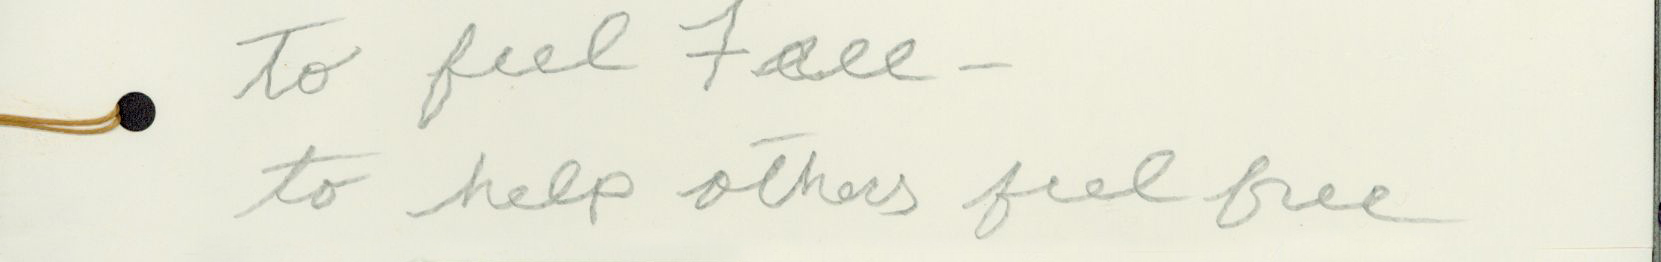 To feel Free –
to help others feel free